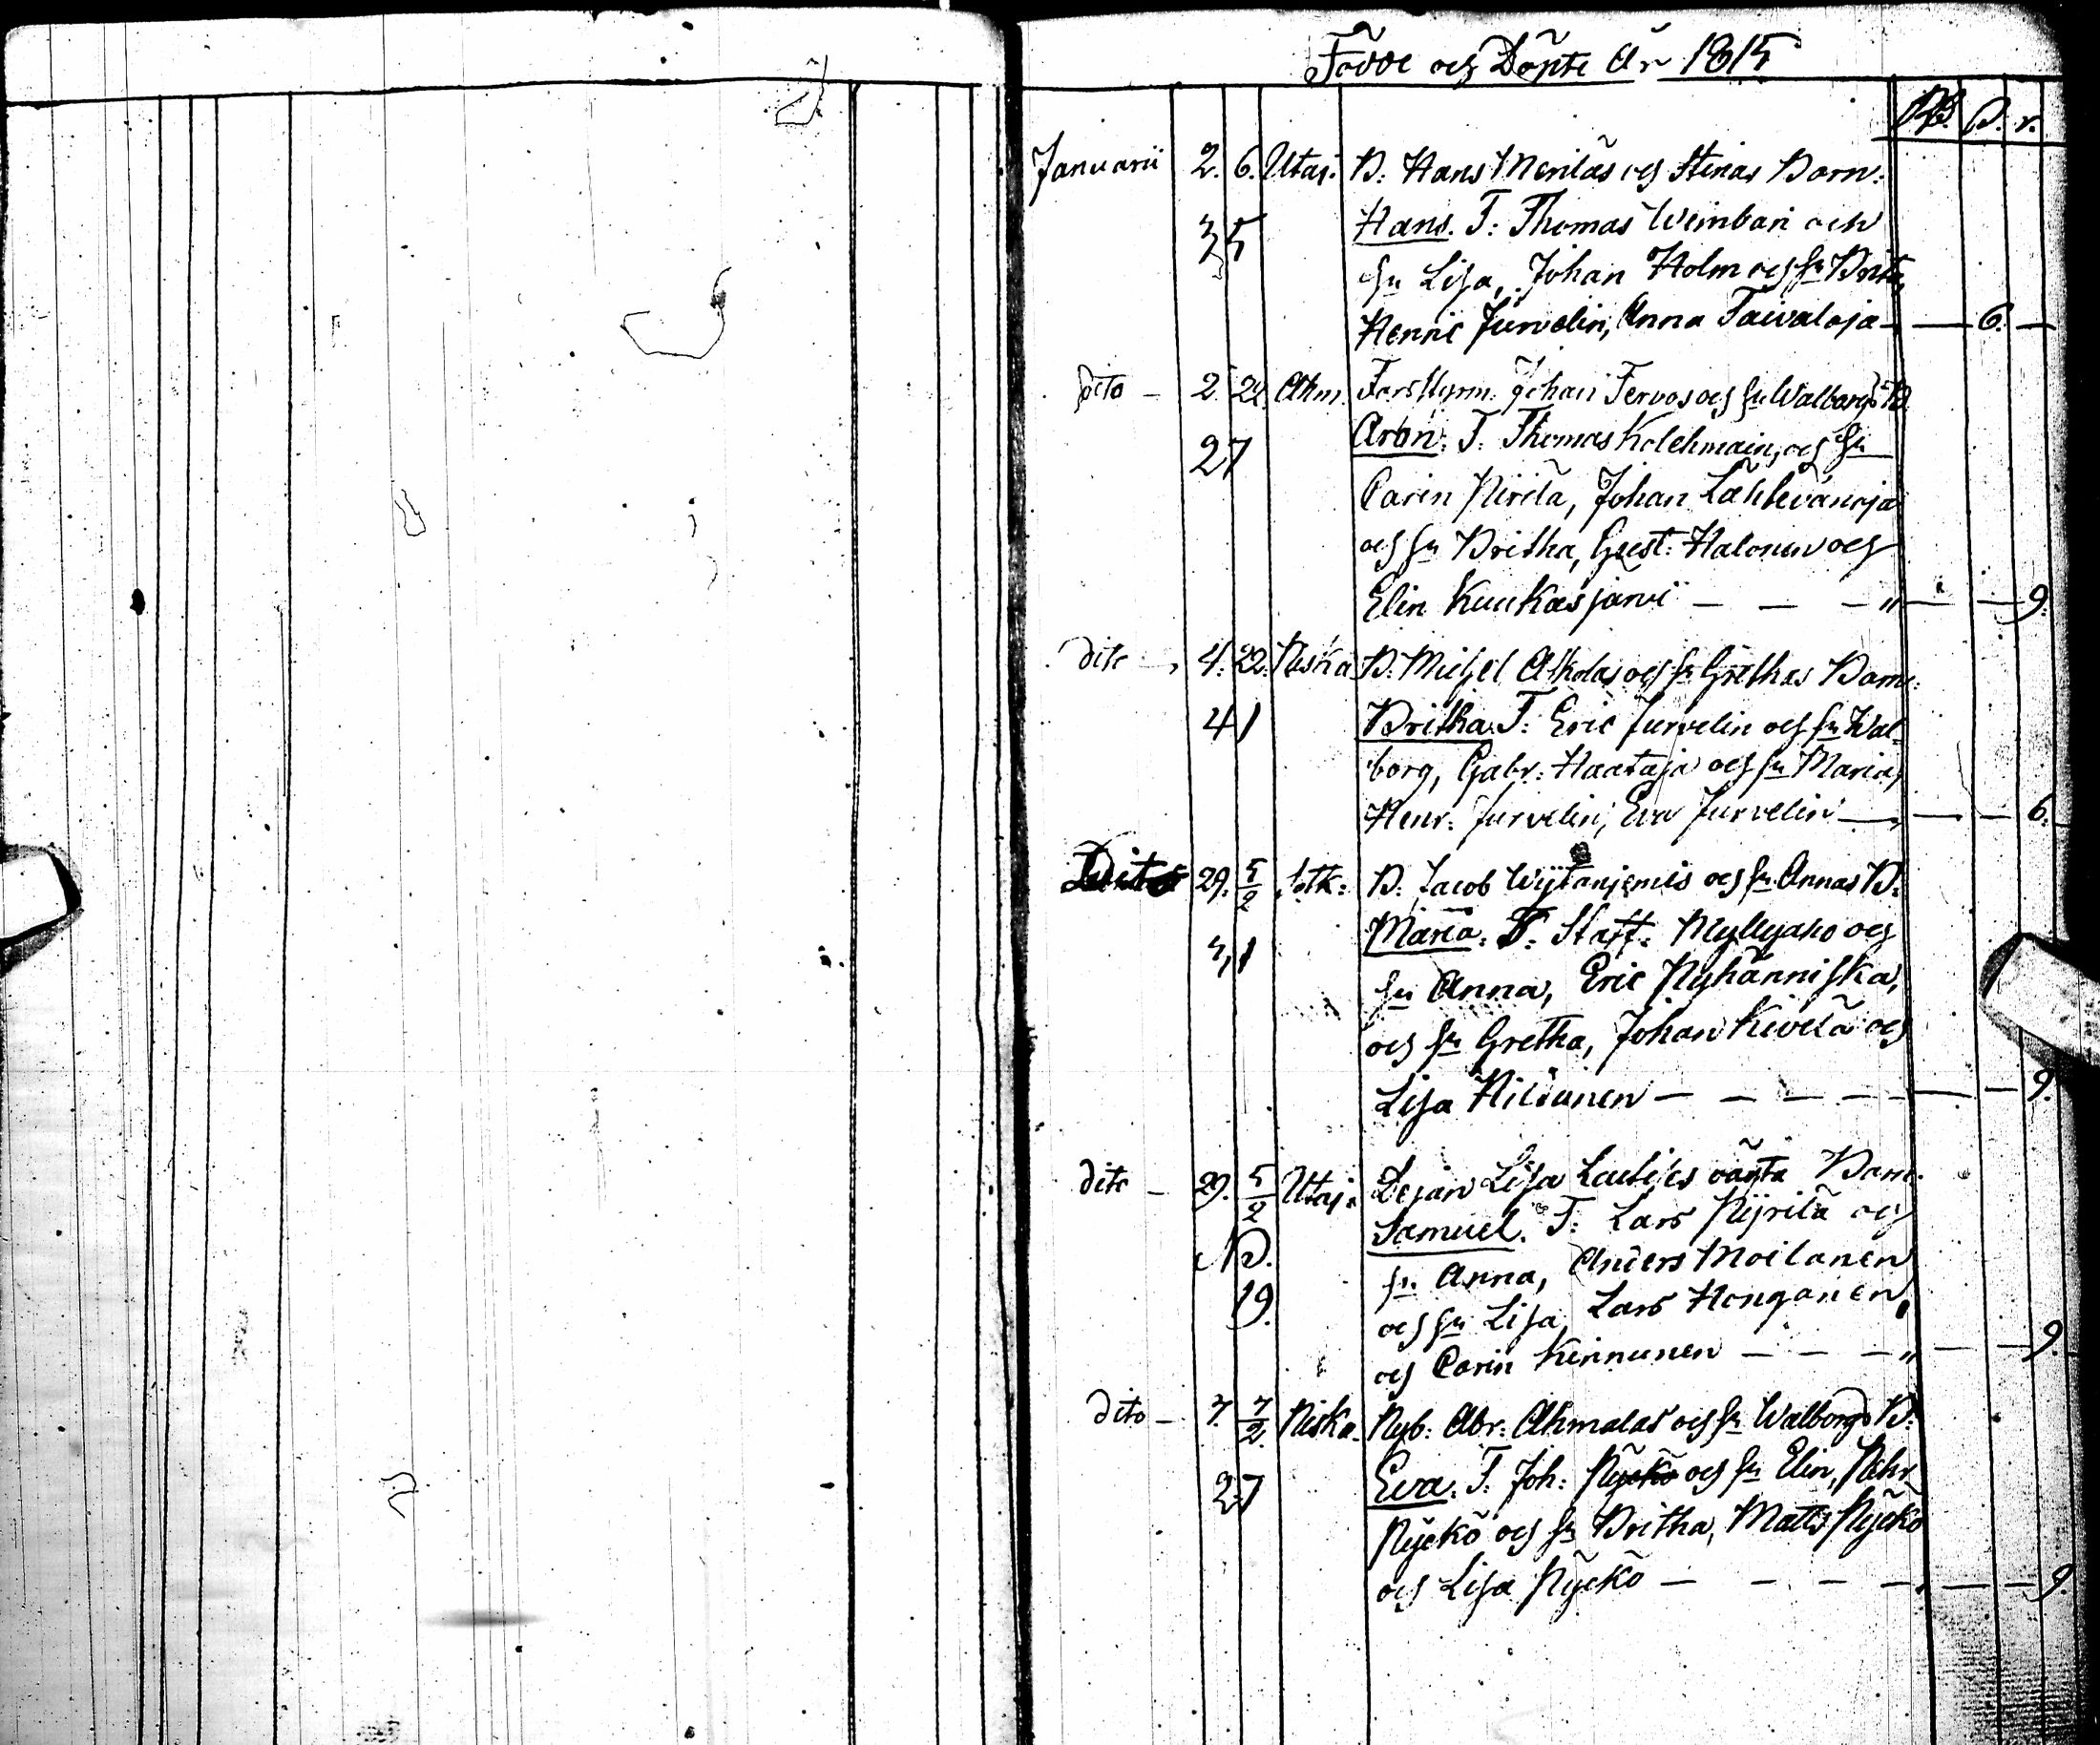 Födde och Döpte År 1815
RS. B. r.
Januarii 2. 6. Utaj. B. Hans Meriläs och Stinas Barn:
35 Hans. F: Thomas Weinbari och
hu Lisa, Johan Holm och hu Brita,
Henric Jurvelin, Anna Taivaloja — 6. —
dito — 2 22. Ahm. Torsk Johan Tervos och hu Walborgs B.
27 Aron. F. Thomas Kolehmain, och hu
Carin Pirilä, Johan Lähtevänoja
och hu Britha, Gust: Halonen och
Elin Kuukasjärvi — — — " — — 9.
dito — 4. 22. Niska B. Michel Aholas och hu Grethas Barn:
41 Britha. F: Eric Jurvelin och hu Wal-
borg, Gabr: Haataja och hu Maria,
Henr: Jurvelin, Eva Jurvelin — — — 6.
Dito 29. 5/2 Sotk: B. Jacob Wijtanjemis och hu Annas B.
31 Maria. F: Staff: Myllyaho och
hu Anna, Eric Pyhänniska,
och hu Gretha, Johan Kivelä och
Lisa Hiltunen — — — — — — 9.
dito — 29. 5/2 Utaj: Pejan Lisa oäkta Barn.
Samuel. F: Lars Pijrilä och
NB. hu Anna, Anders Moilanen
19. och hu Lisa, Lars Honganen,
och Carin Kinnunen — — — " — 9.
dito — 7. 7/2. Niska. Nyb: Abr: Ahmalas och hu Walborgs B.
27 Eva. F. Joh: Nyckö och hu Elin, Pehr
Nyckö och hu Britha, Matts Nyckö
och Lisa Nyckö — — — — — — 9.